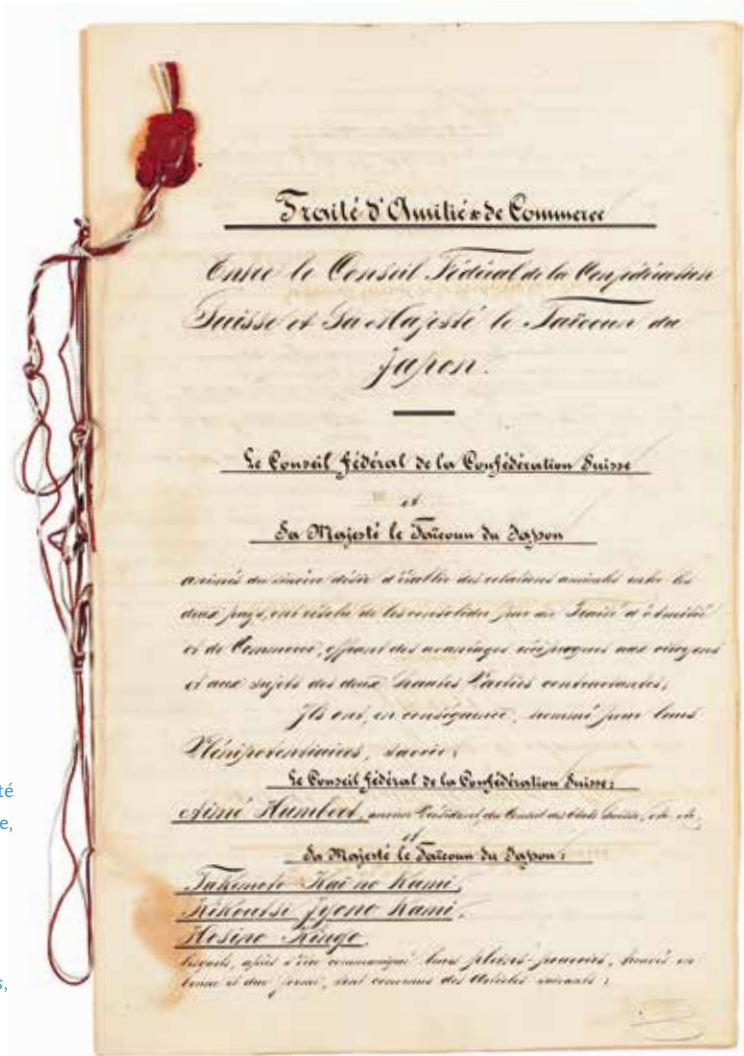 Traité d'Amitié & de Commerce
Entre le Conseil Fédéral de la Confédération
Suisse et Sa Majesté le Taïcoun du
Japon.
Le Conseil fédéral de la Confédération Suisse
et
Sa Majesté le Taïcoun du Japon
animés du sincère désir d'établir des relations amicales entre les
deux pays, ont résolu de les consolider par un Traité d'Amitié
et de Commerce, offrant des avantages réciproques aux citoyens
et aux sujets des deux hautes Parties contractantes;
Ils ont, en conséquence, nommé pour leurs
Plénipotentiaires, savoir:
Le Conseil fédéral de la Confédération Suisse:
Aimé Humbert, ancien Président du Conseil des Etats Suisse, etc. etc.
et
Sa Majesté le Taïcoun du Japon:
Takemoto Kaï no Kami,
Kikoutsi Jyono Kami,
Hosino Kingo,
lesquels, après s'être communiqué leurs pleins-pouvoirs, trouvés en
bonne et due forme, sont convenus des Articles suivants:
té
e,
s,